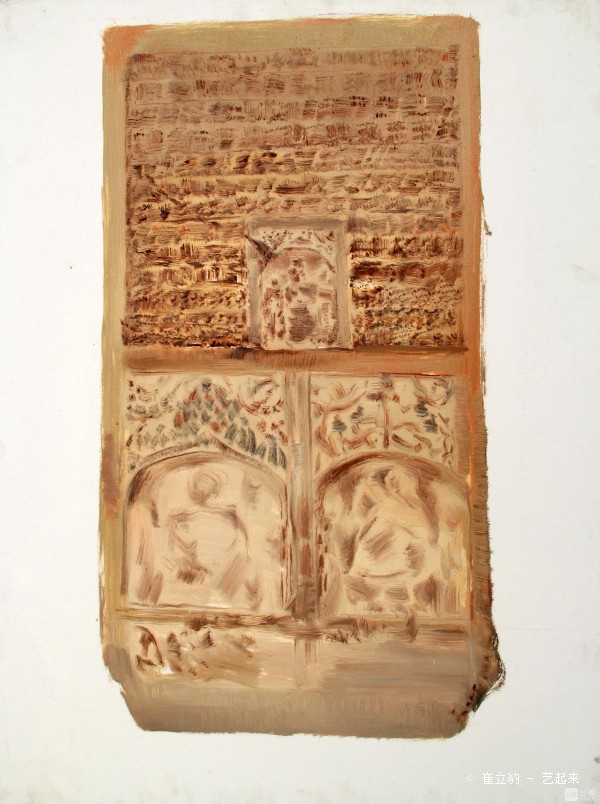 © 崔立豹 - 艺起来